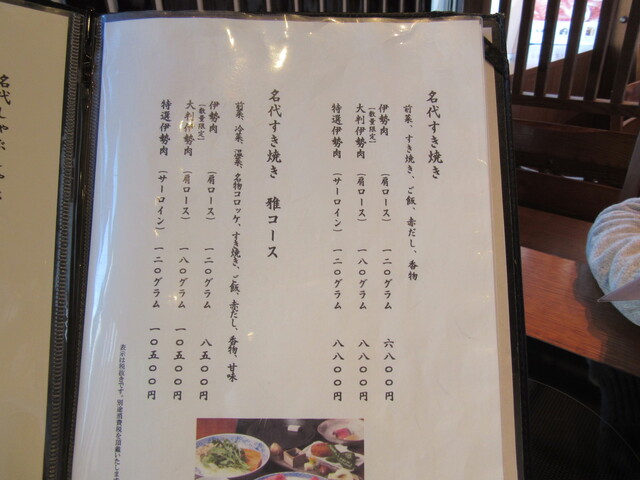 名代すき焼き
前菜、すき焼き、ご飯、赤だし、香物
伊勢肉 （肩ロース） 一二〇グラム 六八〇〇円
［数量限定］
大判伊勢肉 （肩ロース） 一八〇グラム 八八〇〇円
特選伊勢肉 （サーロイン） 一二〇グラム 八八〇〇円
名代すき焼き 雅コース
前菜、冷菜、温菜、名物コロッケ、すき焼き、ご飯、赤だし、香物、甘味
伊勢肉 （肩ロース） 一二〇グラム 八五〇〇円
［数量限定］
大判伊勢肉 （肩ロース） 一八〇グラム 一〇五〇〇円
特選伊勢肉 （サーロイン） 一二〇グラム 一〇五〇〇円
表示は税抜きです。別途消費税を頂戴いたします